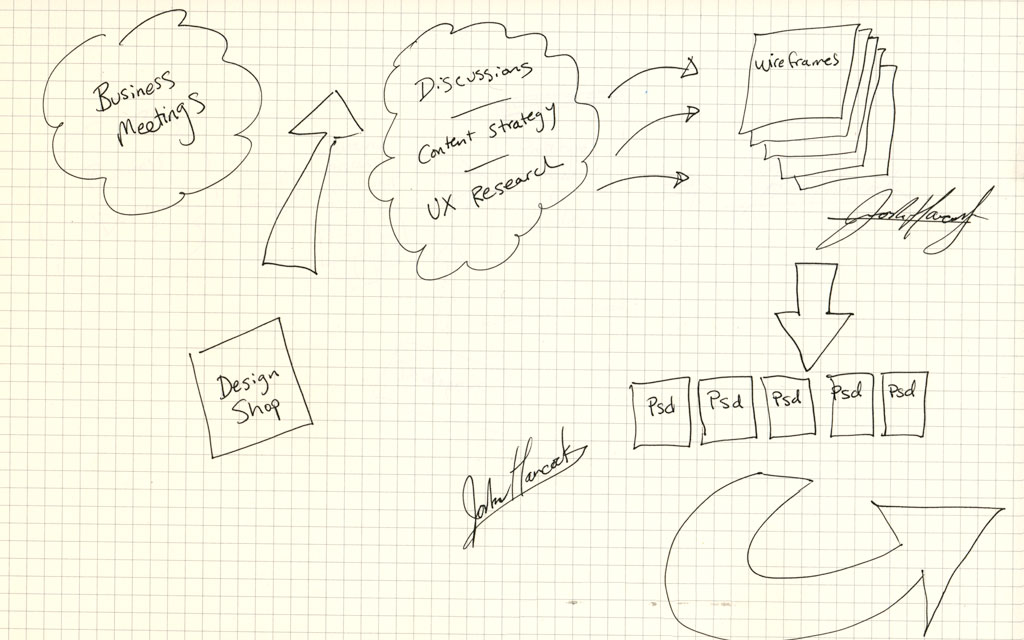 Business
Meetings
Discussions
Content Strategy
UX Research
wireframes
John Hancock
Design
Shop
Psd
Psd
Psd
Psd
Psd
John Hancock